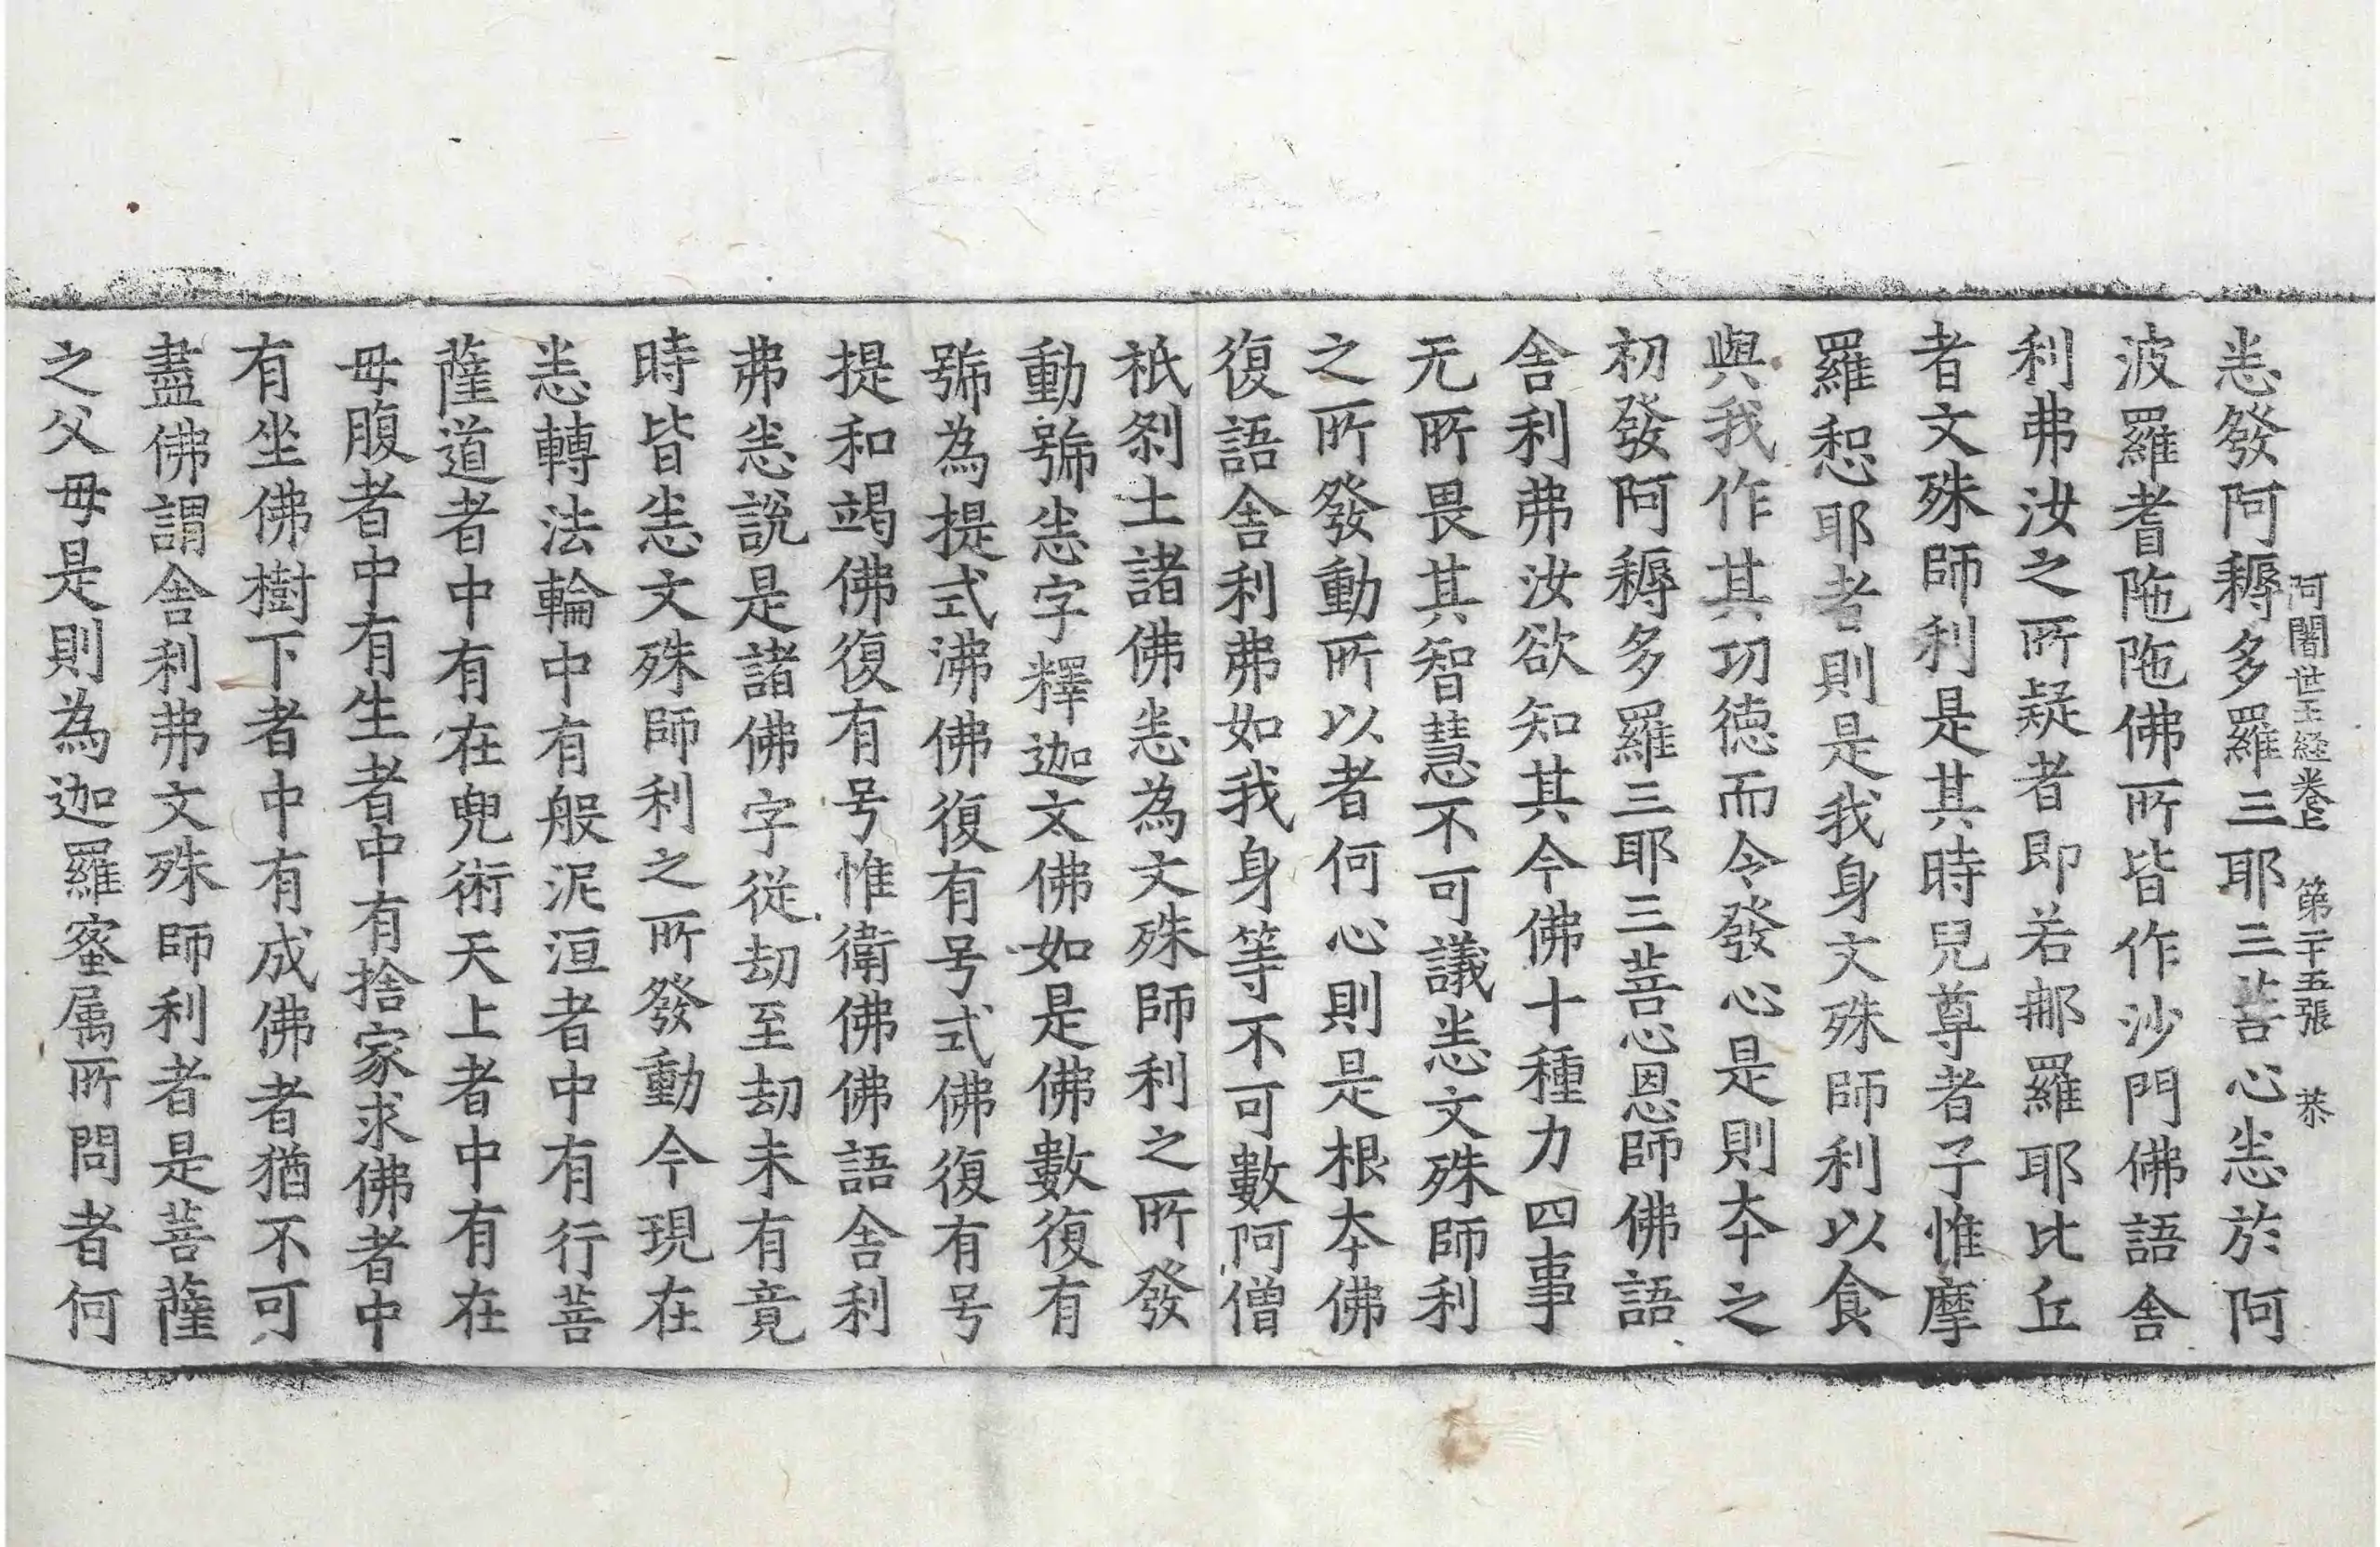 悉發阿耨多羅三耶三菩心悉於阿
阿闍世王経卷上　第二十五張　恭
波羅耆陁陁佛所皆作沙門佛語舍
利弗汝之所疑者即若郍羅耶比丘
者文殊師利是其時兒尊者子惟摩
羅惒耶者則是我身文殊師利以食
與我作其功徳而令發心是則夲之
初發阿耨多羅三耶三菩心恩師佛語
舍利弗汝欲知其今佛十種力四事
无所畏其智慧不可議悉文殊師利
之所發動所以者何心則是根夲佛
復語舍利弗如我身等不可數阿僧
祇剎土諸佛悉為文殊師利之所發
動號悉字釋迦文佛如是佛數復有
號為提式沸佛復有号式佛復有号
提和竭佛復有号惟衛佛佛語舍利
弗悉說是諸佛字從劫至劫未有竟
時皆悉文殊師利之所發動今現在
悉轉法輪中有般泥洹者中有行菩
薩道者中有在兜術天上者中有在
母腹者中有生者中有捨家求佛者中
有坐佛樹下者中有成佛者猶不可
盡佛謂舍利弗文殊師利者是菩薩
之父母是則為迦羅蜜属所問者何